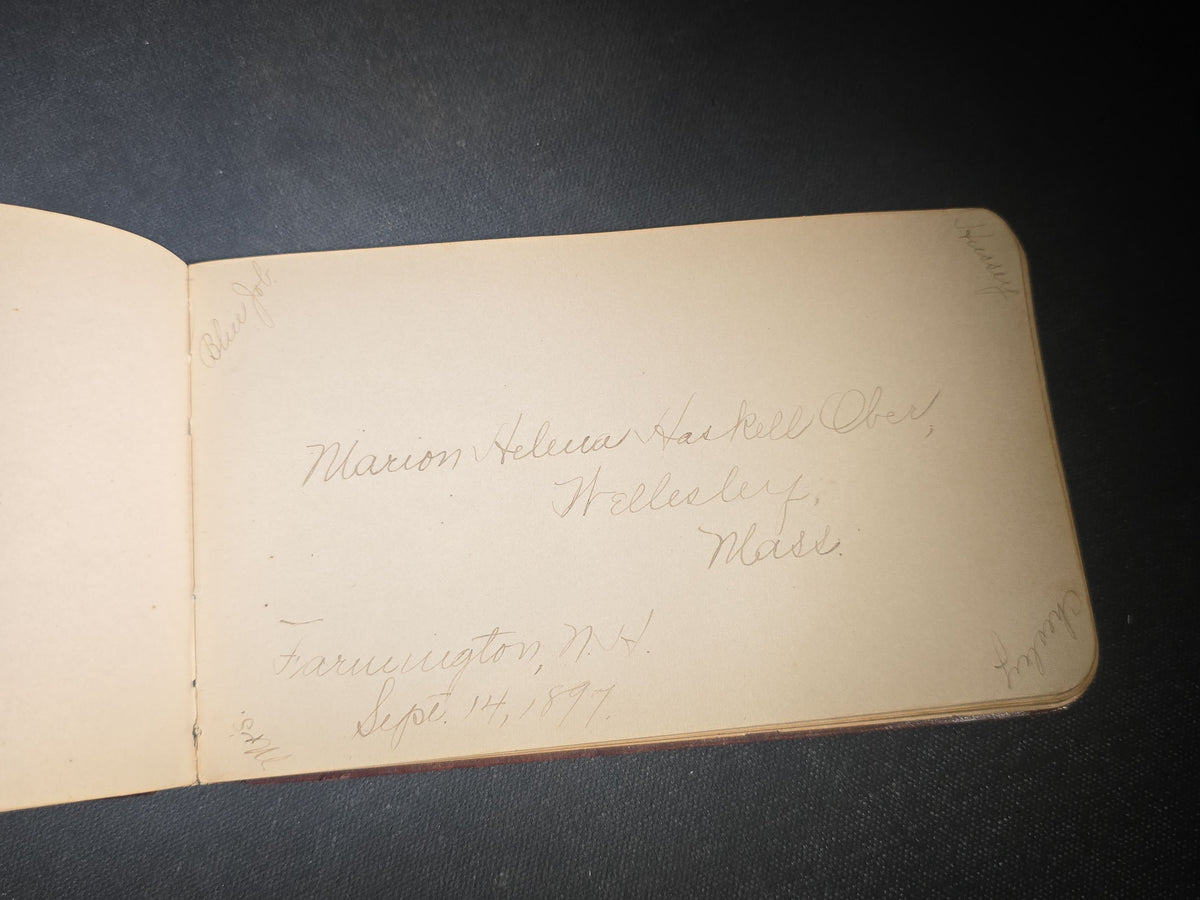 Blue Job
Hussey
Marion Helena Haskell Ober,
Wellesley,
Mass.
Farmington, N.H.
Sept. 14, 1897.
Chesley
Mts.